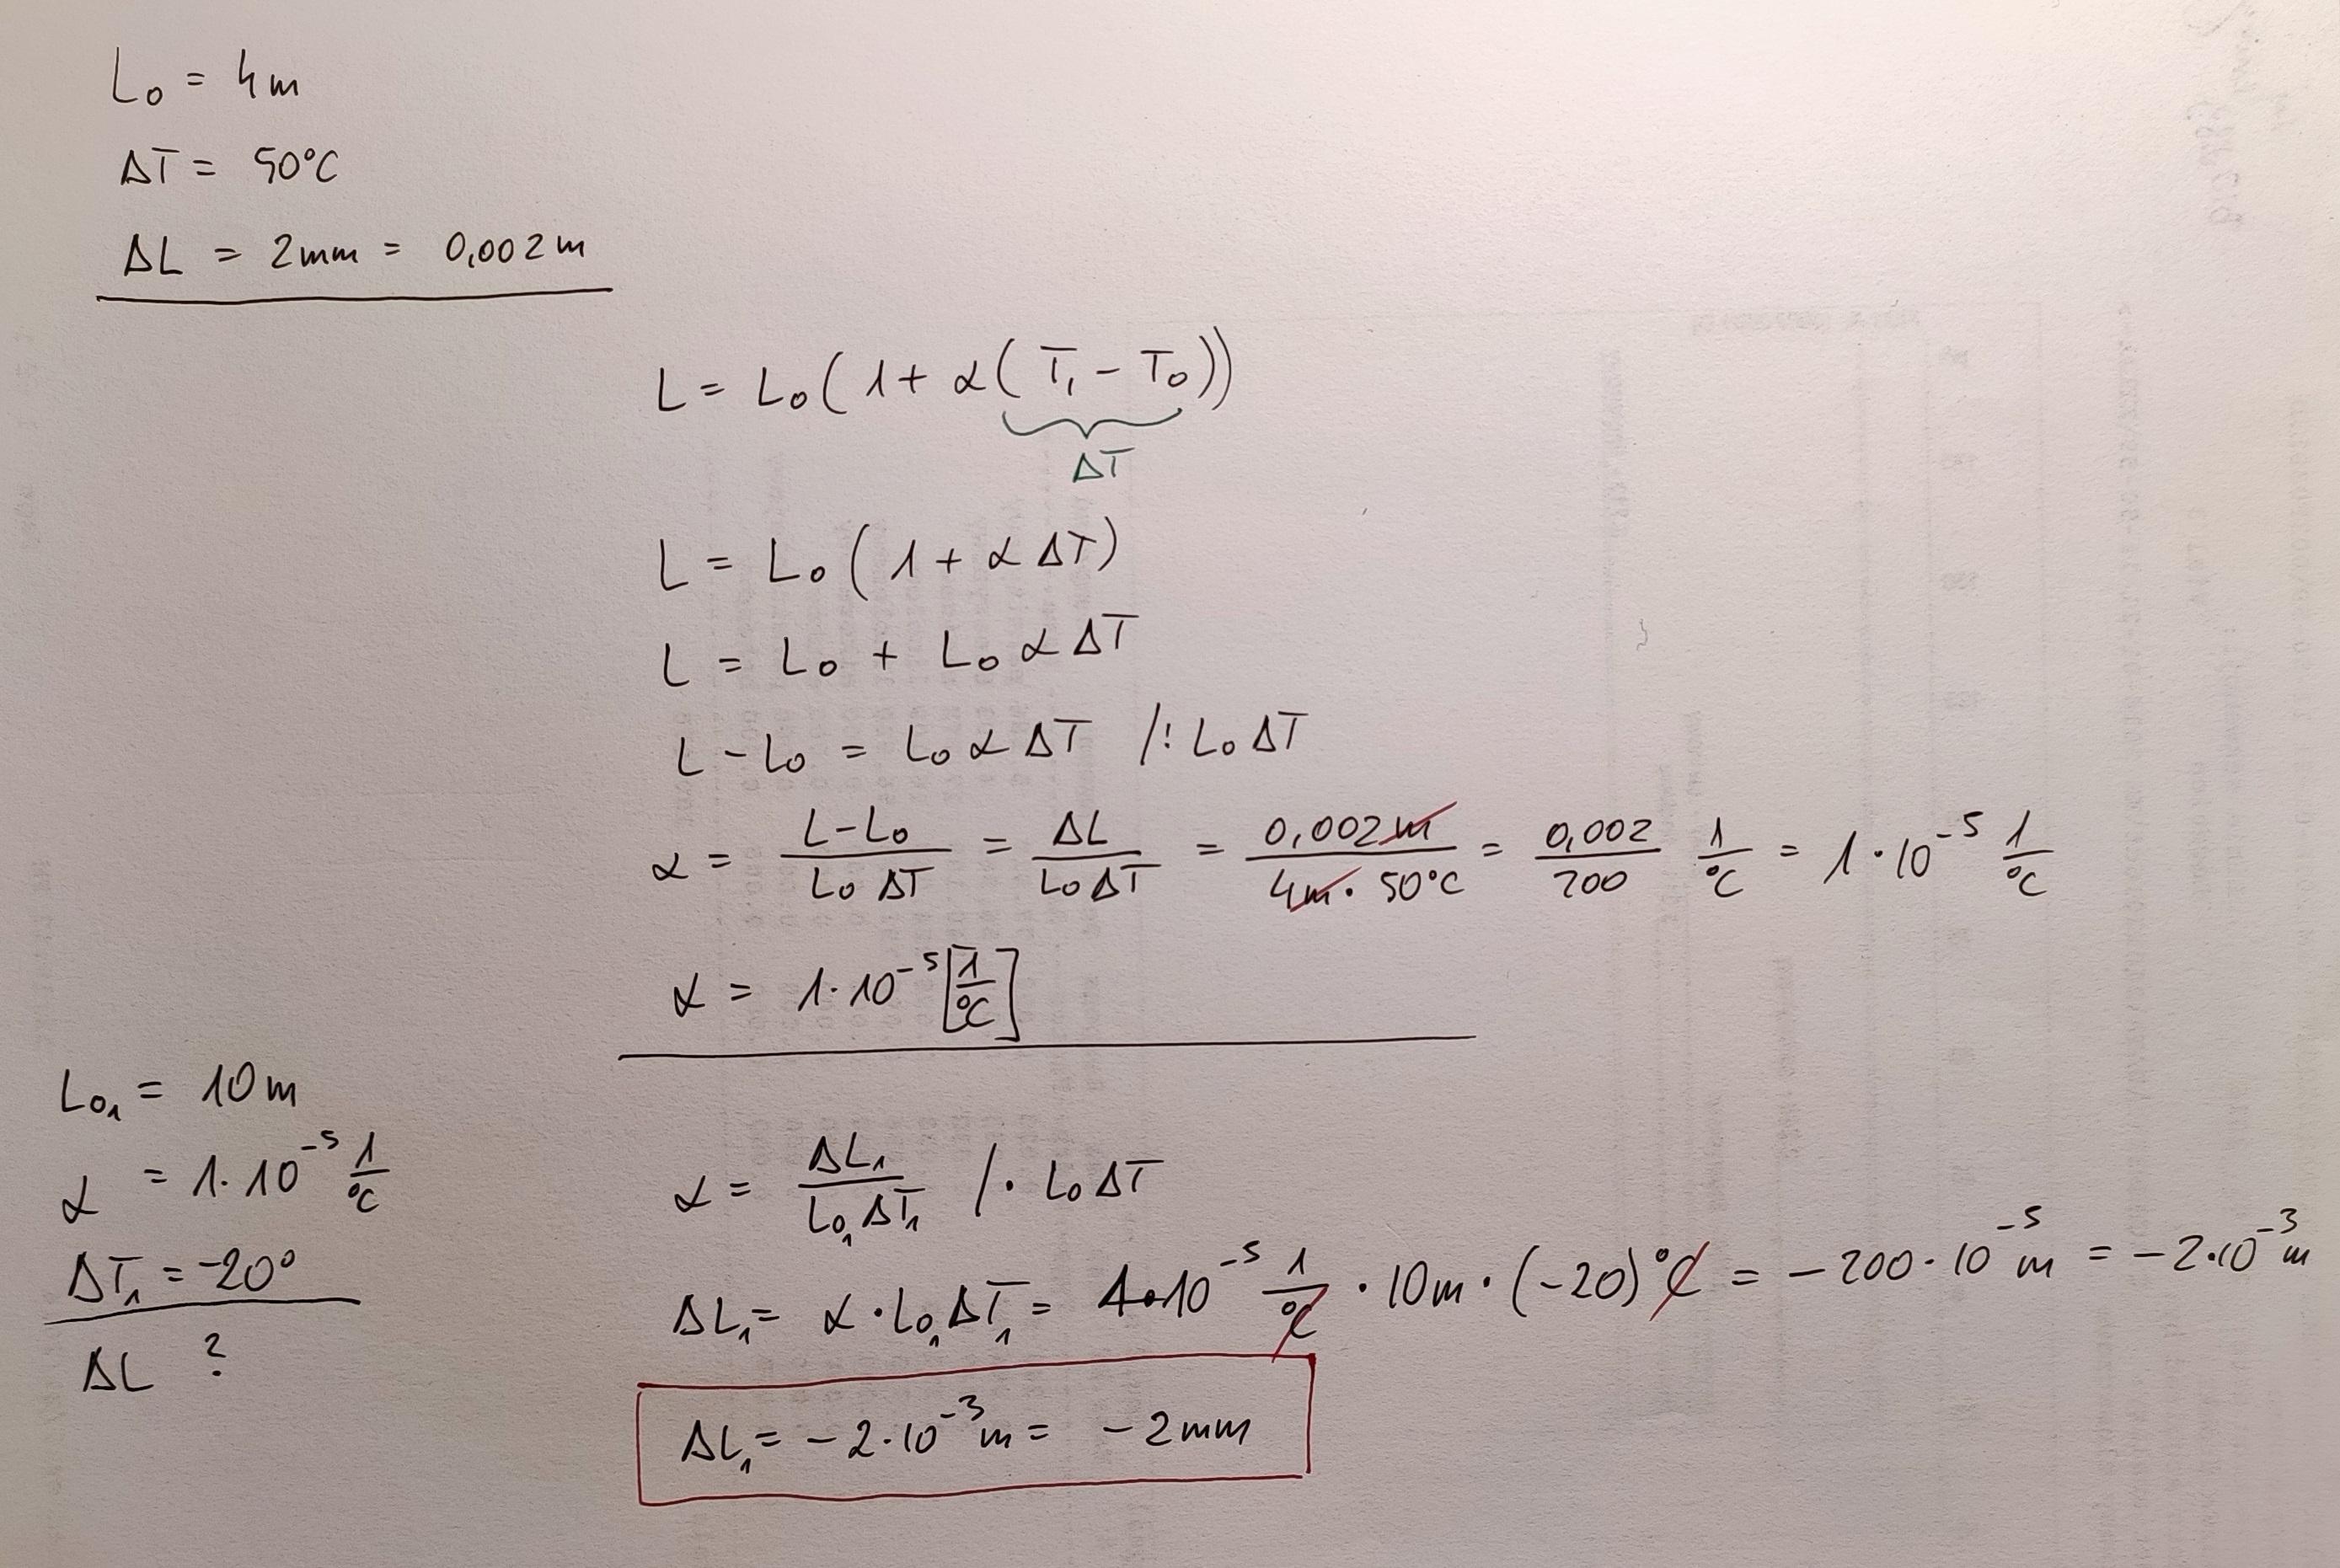 L₀ = 4m
ΔT = 50°C
ΔL = 2mm = 0,002m
L = L₀(1 + α(T₁ - T₀))
ΔT
L = L₀(1 + αΔT)
L = L₀ + L₀αΔT
L - L₀ = L₀αΔT /: L₀ΔT
α = (L-L₀)/(L₀ ΔT) = ΔL/(L₀ΔT) = 0,002m/(4m · 50°C) = 0,002/200 1/°C = 1·10⁻⁵ 1/°C
α = 1·10⁻⁵ [1/°C]
L₀₁ = 10m
α = 1·10⁻⁵ 1/°C
ΔT₁ = -20°
ΔL ?
α = ΔL₁/(L₀₁ΔT₁) /· L₀ΔT
ΔL₁ = α·L₀₁ΔT₁ = 1·10⁻⁵ 1/°C · 10m · (-20)°C = -200·10⁻⁵m = -2·10⁻³m
ΔL₁ = -2·10⁻³m = -2mm